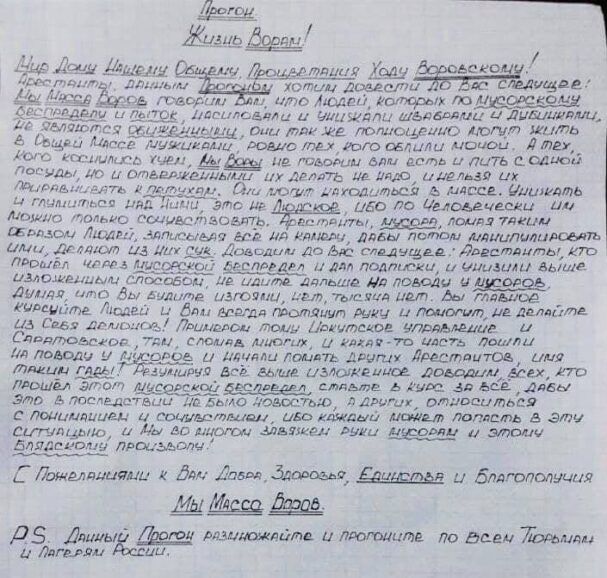 Прогон.
Жизнь Ворам!
Мир Дому Нашему Общему, Процветания Ходу Воровскому!
Арестанты, данным Прогоном хотим довести до Вас следущее:
Мы Масса Воров говорим Вам, что Людей, которых по мусорскому
беспределу и пыток, насиловали и унижали швабрами и дубинками,
не являются обиженными, они так же полноценно могут жить
в Общей Массе мужиками, ровно тех, кого облили мочой. А тех,
кого коснулись хуем, Мы Воры не говорим вам есть и пить с одной
посуды, но и отверженными их делать не надо, и нельзя их
приравнивать к петухам. Они могут находиться в массе. Унижать
и глумиться над Ними, это не Людское, ибо по Человечески им
можно только сочувствовать. Арестанты, мусора, ломая таким
образом Людей, записывая всё на камеру, дабы потом манипулировать
ими, делают из них сук. Доводим до Вас следущее: Арестанты, кто
прошёл через мусорской беспредел и дал подписки, и унизили выше
изложенным способом, не идите дальше на поводу у мусоров,
думая, что Вы будите изгоями, нет, тысяча нет. Вы главное
курсуйте Людей и Вам всегда протянут руку и помогут, не делайте
из Себя демонов! Примером тому Иркутское управление и
Саратовское, там, сломав многих, и какая-то часть пошли
на поводу у мусоров и начали ломать других Арестантов, имя
таким гады! Резумируя всё выше изложенное доводим, всех, кто
прошёл этот мусорской беспредел, ставте в курс за всё, дабы
это в последствии не было новостью, а других, относиться
с пониманием и сочувствием, ибо каждый может попасть в эту
ситуацыю, и Мы во многом завяжем руки мусорам и этому
блядскому произволу!
С Пожеланиями к Вам Добра, Здоровья, Единства и Благополучия
Мы Масса Воров.
P.S. Данный Прогон размножайте и прогоните по всем Тюрьмам
и лагерям России.